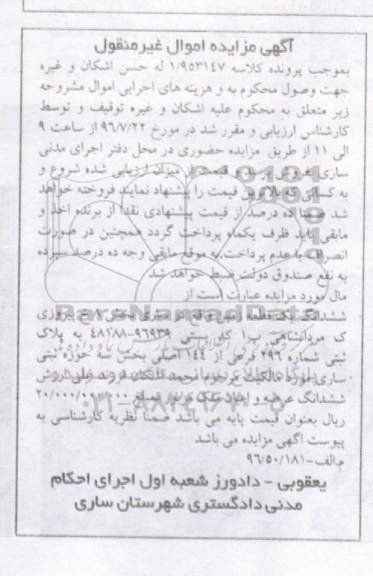 آگهی مزایده اموال غیرمنقول
بموجب پرونده کلاسه ۱/۹۵۳۱۴۷ له حسن اشکان و غیره
جهت وصول محکوم به و هزینه های اجرایی اموال مشروحه
زیر متعلق به محکوم علیه اشکان و غیره توقیف و توسط
کارشناس ارزیابی و مقرر شد در مورخ ۹۶/۷/۲۲ از ساعت ۹
الی ۱۱ از طریق مزایده حضوری در محل دفتر اجرای مدنی
ساری بفروش برسد و قیمت از میزان ارزیابی شده شروع و
به کسانی که بالاترین قیمت را پیشنهاد نمایند فروخته خواهد
شد ضمنا ده درصد از قیمت پیشنهادی نقدا از برنده اخذ و
مابقی باید ظرف یکماه پرداخت گردد همچنین در صورت
انصراف یا عدم پرداخت به موقع مابقی وجه ده درصد سپرده
به نفع صندوق دولت ضبط خواهد شد
مال مورد مزایده عبارت است از
ششدانگ یک واقع در ساری پیروزی
ک مردانشاهی ب۱ کد پستی ۹۶۹۳۹-۴۸۱۸۸ به پلاک
ثبتی شماره ۲۹۶ فرعی از ۱۴۴ اصلی بخش سه حوزه ثبتی
ساری مورد مالکیت مرحوم محمد اشکان فرزند ارزش
ششدانگ عرصه و اعیان ملک مزبور بمبلغ ۲۰/۰۰۰/۰۰۰/۰۰۰
ریال بعنوان قیمت پایه می باشد ضمنا نظریه کارشناسی به
پیوست اگهی مزایده می باشد
م.الف-۹۶/۵۰/۱۸۱
یعقوبی - دادورز شعبه اول اجرای احکام
مدنی دادگستری شهرستان ساری